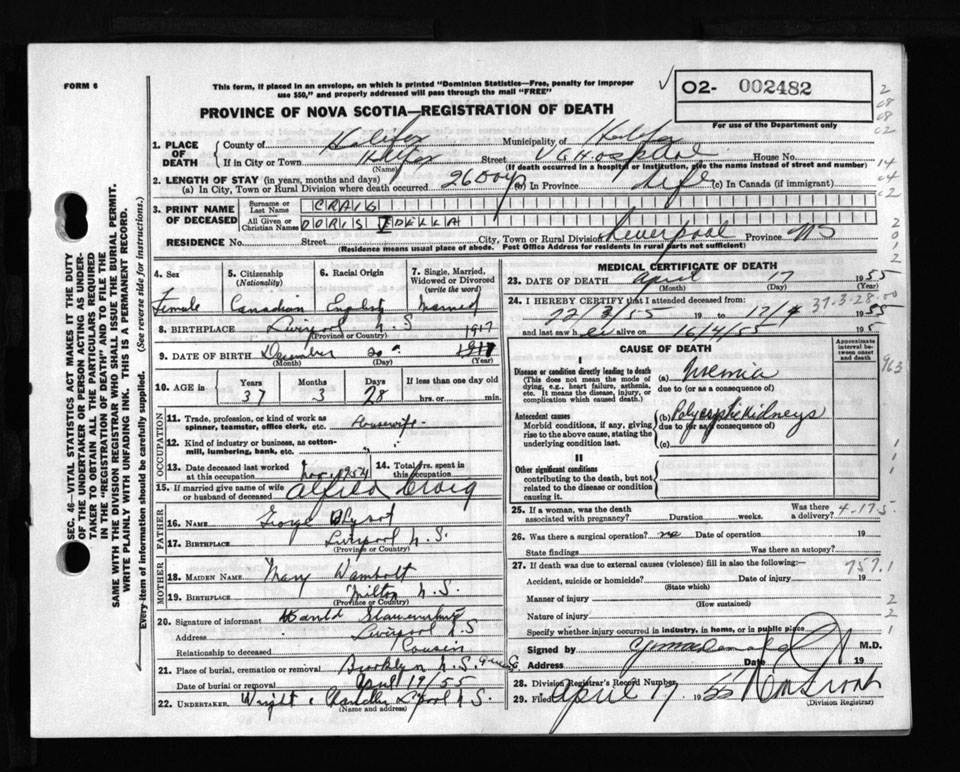 FORM 6
This form, if placed in an envelope, on which is printed "Dominion Statistics—Free, penalty for improper
use $50," and properly addressed will pass through the mail "FREE"
02- 002482
For use of the Department only
PROVINCE OF NOVA SCOTIA—REGISTRATION OF DEATH
1. PLACE OF DEATH
County of Halifax Municipality of Halifax
If in City or Town Halifax Street V G Hospital House No.
(Name) (If death occurred in a hospital or institution, give the name instead of street and number)
2. LENGTH OF STAY (in years, months and days)
(a) In City, Town or Rural Division where death occurred 26 Days (b) In Province Life (c) In Canada (if immigrant)
3. PRINT NAME OF DECEASED
Surname or Last Name CRAIG
All Given or Christian Names DORIS IDELLA
RESIDENCE No. Street City, Town or Rural Division Liverpool Province NS
(Residence means usual place of abode. Post Office Address for residents in rural parts not sufficient)
4. Sex 5. Citizenship (Nationality) 6. Racial Origin 7. Single, Married, Widowed or Divorced (write the word)
Female Canadian English Married
8. BIRTHPLACE Liverpool N.S
(Province or Country) 1917
9. DATE OF BIRTH December 20
(Month) (Day) (Year)
10. AGE in Years Months Days If less than one day old
37 3 28 hrs. or min.
OCCUPATION
11. Trade, profession, or kind of work as
spinner, teamster, office clerk, etc. Housewife
12. Kind of industry or business, as cotton-
mill, lumbering, bank, etc.
13. Date deceased last worked at this occupation Nov. 1954 14. Total yrs. spent in this occupation
15. If married give name of wife or husband of deceased Alfred Craig
FATHER
16. NAME George
17. BIRTHPLACE Liverpool N.S.
(Province or Country)
MOTHER
18. MAIDEN NAME Mary Wambolt
19. BIRTHPLACE Milton N.S.
(Province or Country)
20. Signature of informant Harold
Address Liverpool N.S
Relationship to deceased Cousin
21. Place of burial, cremation or removal Brooklyn N.S.
Date of burial or removal April 19/55
22. UNDERTAKER Wright & Chandler L'pool N.S.
(Name and address)
MEDICAL CERTIFICATE OF DEATH
23. DATE OF DEATH April 17 1955
(Month) (Day) (Year)
24. I HEREBY CERTIFY that I attended deceased from: 37-3-28-00
22/3/55 19 to 17/4 1955
and last saw her alive on 16/4/55 195
CAUSE OF DEATH
Approximate interval between onset and death
I
Disease or condition directly leading to death
(This does not mean the mode of
dying, e.g., heart failure, asthenia,
etc. It means the disease, injury, or
complication which caused death.)
(a) Uremia
due to (or as a consequence of)
Antecedent causes
Morbid conditions, if any, giving
rise to the above cause, stating the
underlying condition last.
(b) Polycystic Kidneys
due to (or as a consequence of)
(c)
II
Other significant conditions
contributing to the death, but not
related to the disease or condition
causing it.
25. If a woman, was the death
associated with pregnancy? Duration weeks. Was there a delivery?
4.17 5.
26. Was there a surgical operation? no Date of operation 19
State findings Was there an autopsy?
27. If death was due to external causes (violence) fill in also the following:— 757.1
Accident, suicide or homicide? Date of injury 19
(State which)
Manner of injury
(How sustained)
Nature of injury
Specify whether injury occurred in industry, in home, or in public place
Signed by M.D.
Address Date
28. Division Registrar's Record Number
29. Filed April 19 1955
(Division Registrar)
SEC. 46—VITAL STATISTICS ACT MAKES IT THE DUTY
OF THE UNDERTAKER OR PERSON ACTING AS UNDER-
TAKER TO OBTAIN ALL THE PARTICULARS REQUIRED
IN THE "REGISTRATION OF DEATH" AND TO FILE THE
SAME WITH THE DIVISION REGISTRAR WHO SHALL ISSUE THE BURIAL PERMIT.
WRITE PLAINLY WITH UNFADING INK. THIS IS A PERMANENT RECORD.
Every item of information should be carefully supplied. (See reverse side for instructions.)